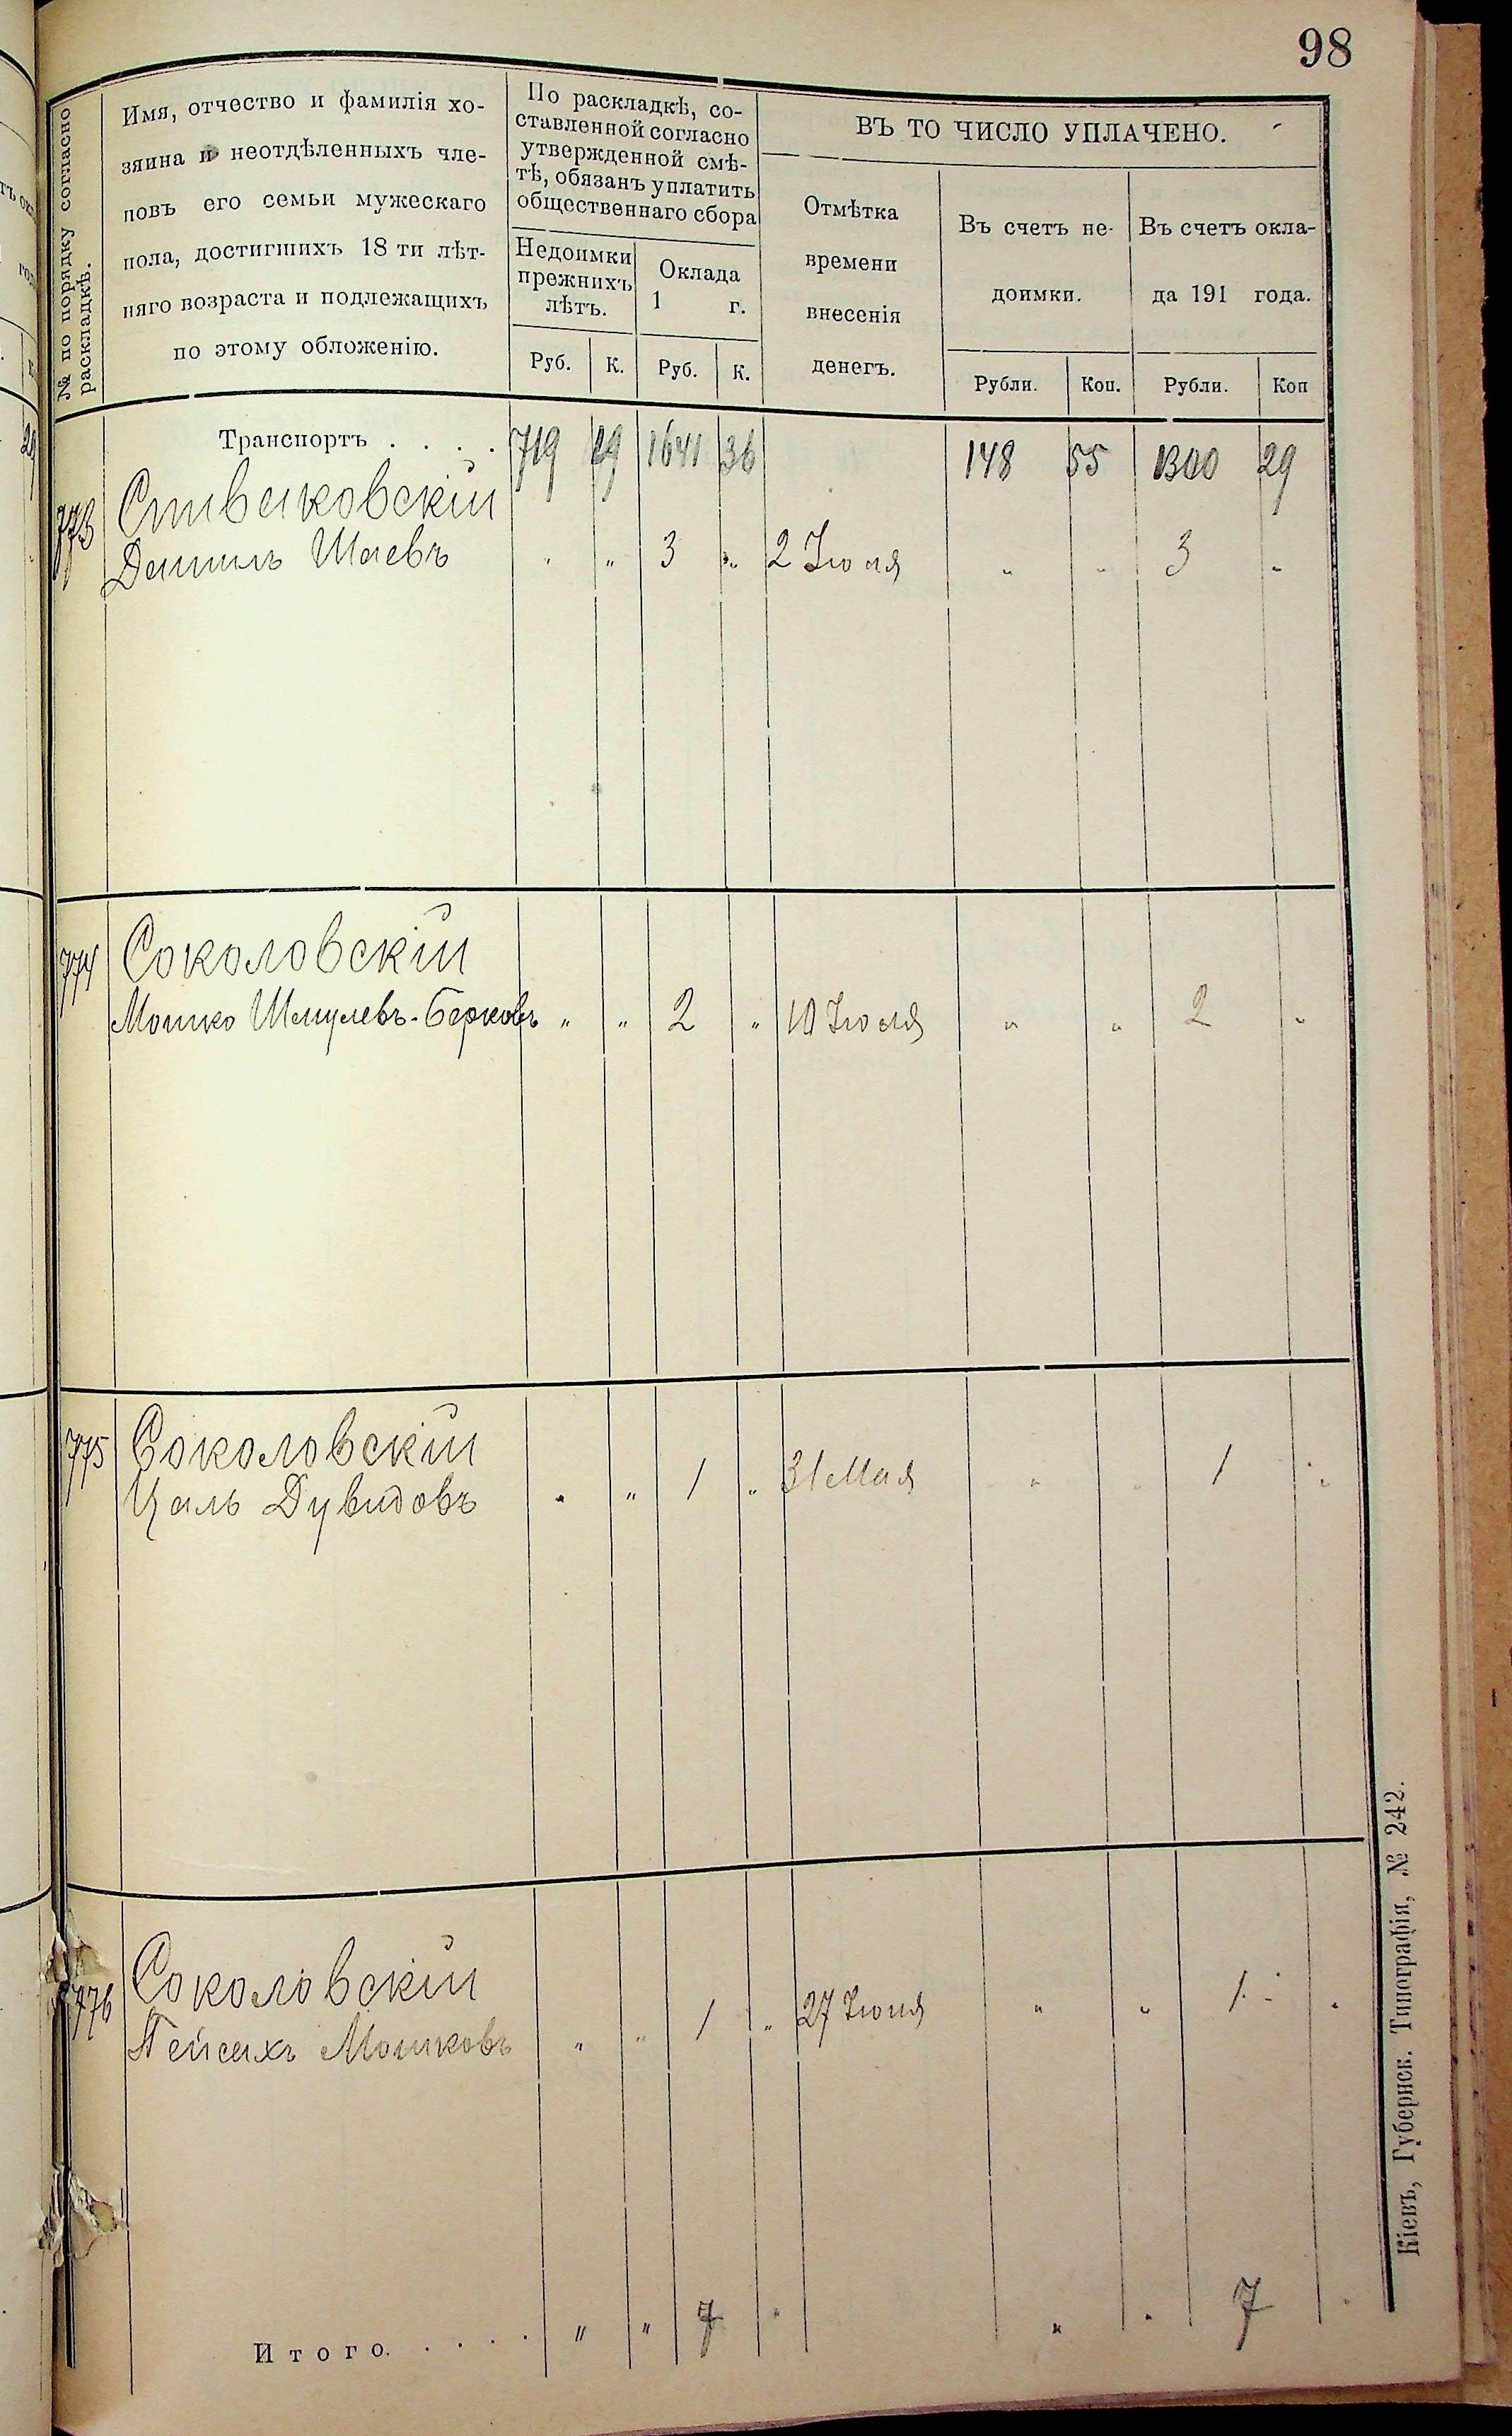 98
№ по порядку согласно
раскладкѣ.
Имя, отчество и фамилія хо-
зяина и неотдѣленныхъ чле-
новъ его семьи мужескаго
пола, достигшихъ 18 ти лѣт-
няго возраста и подлежащихъ
по этому обложенію.
По раскладкѣ, со-
ставленной согласно
утвержденной смѣ-
тѣ, обязанъ уплатить
общественнаго сбора
Недоимки
прежнихъ
лѣтъ.
Оклада
1 г.
Руб. К. Руб. К.
ВЪ ТО ЧИСЛО УПЛАЧЕНО.
Отмѣтка
времени
внесенія
денегъ.
Въ счетъ не-
доимки.
Въ счетъ окла-
да 191 года.
Рубли. Коп. Рубли. Коп
Транспортъ . . . . 719 29 1641 36 148 55 1300 29
773 Спиваковскій
Даниль Шаевъ " " 3 " 2 Іюля " " 3 "
774 Соколовскій
Мошко Шмулевъ-Берковъ " " 2 " 10 Іюля " " 2 "
775 Соколовскій
Цаль Дувидовъ " " 1 " 31 Мая " " 1 "
776 Соколовскій
Пейсахъ Мошковъ " " 1 " 27 Іюня " " 1 "
Итого. . . . . " " 7 " " " 7 "
Кіевъ, Губернск. Типографія, № 242.